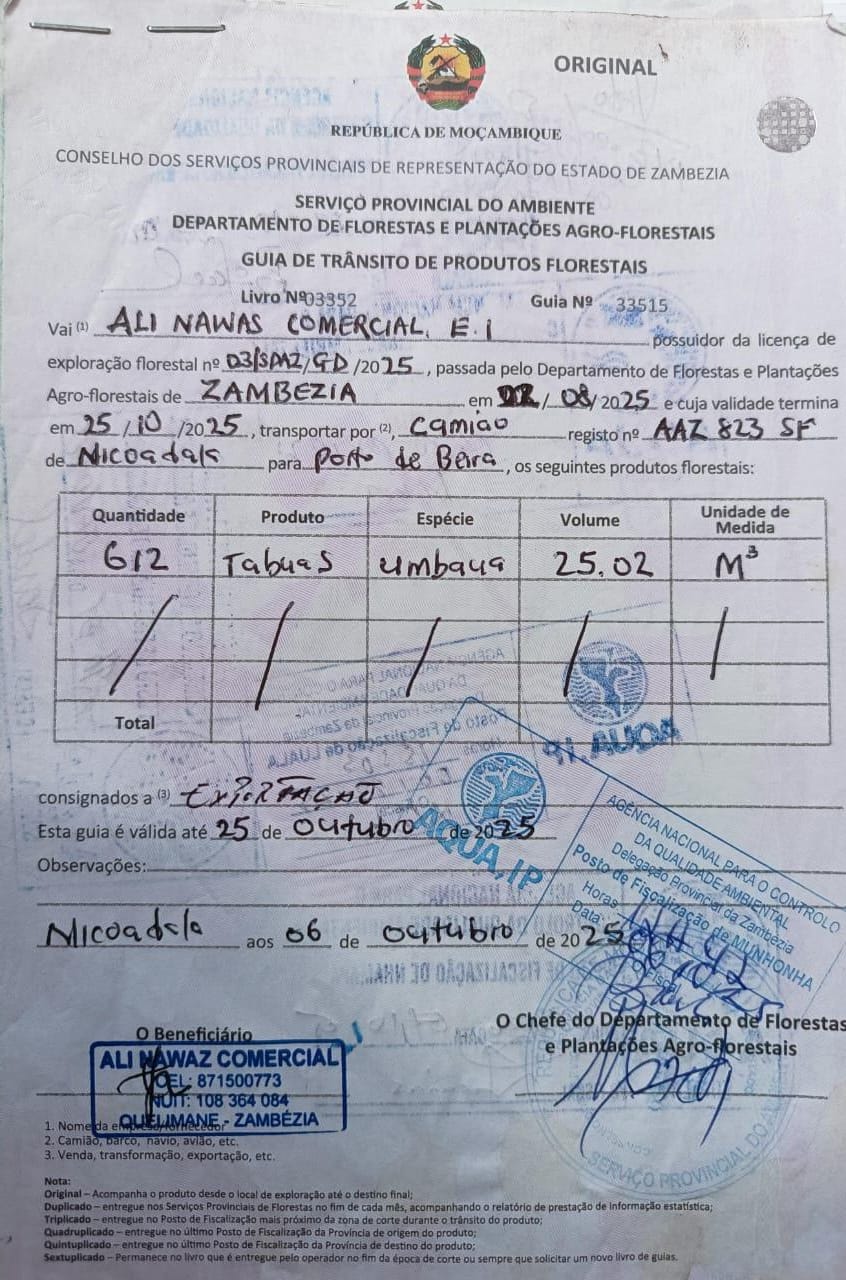 ORIGINAL
REPÚBLICA DE MOÇAMBIQUE
CONSELHO DOS SERVIÇOS PROVINCIAIS DE REPRESENTAÇÃO DO ESTADO DE ZAMBEZIA
SERVIÇO PROVINCIAL DO AMBIENTE
DEPARTAMENTO DE FLORESTAS E PLANTAÇÕES AGRO-FLORESTAIS
GUIA DE TRÂNSITO DE PRODUTOS FLORESTAIS
Livro Nº 03352 Guia Nº 33515
Vai (1) ALI NAWAS COMERCIAL, E.I possuidor da licença de
exploração florestal nº 03/SPAZ/GD/2025, passada pelo Departamento de Florestas e Plantações
Agro-florestais de ZAMBEZIA em /08/2025 e cuja validade termina
em 25/10/2025, transportar por (2), Camião registo nº AAZ 823 SF
de Nicoadala para Porto de Beira, os seguintes produtos florestais:
Quantidade Produto Espécie Volume Unidade de Medida
612 Tabuas umbaua 25.02 M³
Total
consignados a (3) EXPORTAÇÃO
Esta guia é válida até 25 de outubro de 2025
Observações:
Nicoadala aos 06 de outubro de 2025
AQUA, IP
AQUA
AGÊNCIA NACIONAL PARA O CONTROLO
DA QUALIDADE AMBIENTAL
Delegação Provincial da Zambézia
Posto de Fiscalização de MUNHONHA
Horas
Data
Fiscal
O Beneficiário
ALI NAWAZ COMERCIAL
CEL: 871500773
NUIT: 108 364 084
QUELIMANE - ZAMBÉZIA
O Chefe do Departamento de Florestas
e Plantações Agro-florestais
SERVIÇO PROVINCIAL DO
1. Nome da empresa/fornecedor
2. Camião, barco, navio, avião, etc.
3. Venda, transformação, exportação, etc.
Nota:
Original – Acompanha o produto desde o local de exploração até o destino final;
Duplicado – entregue nos Serviços Provinciais de Florestas no fim de cada mês, acompanhando o relatório de prestação de informação estatística;
Triplicado – entregue no Posto de Fiscalização mais próximo da zona de corte durante o trânsito do produto;
Quadruplicado – entregue no último Posto de Fiscalização da Província de origem do produto;
Quintuplicado – entregue no último Posto de Fiscalização da Província de destino do produto;
Sextuplicado – Permanece no livro que é entregue pelo operador no fim da época de corte ou sempre que solicitar um novo livro de guias.